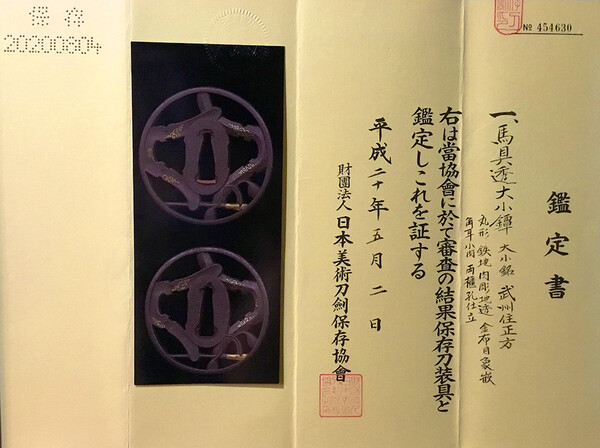 保存
20200804
№ 454630
鑑定書
一、馬具透大小鐔 大小銘 武州住正方
丸形 鉄地 肉彫地透 金布目象嵌
角耳小肉 両櫃孔仕立
右は當協會に於て審査の結果保存刀装具と
鑑定しこれを証する
平成二十年五月二日
財團法人 日本美術刀劍保存協會